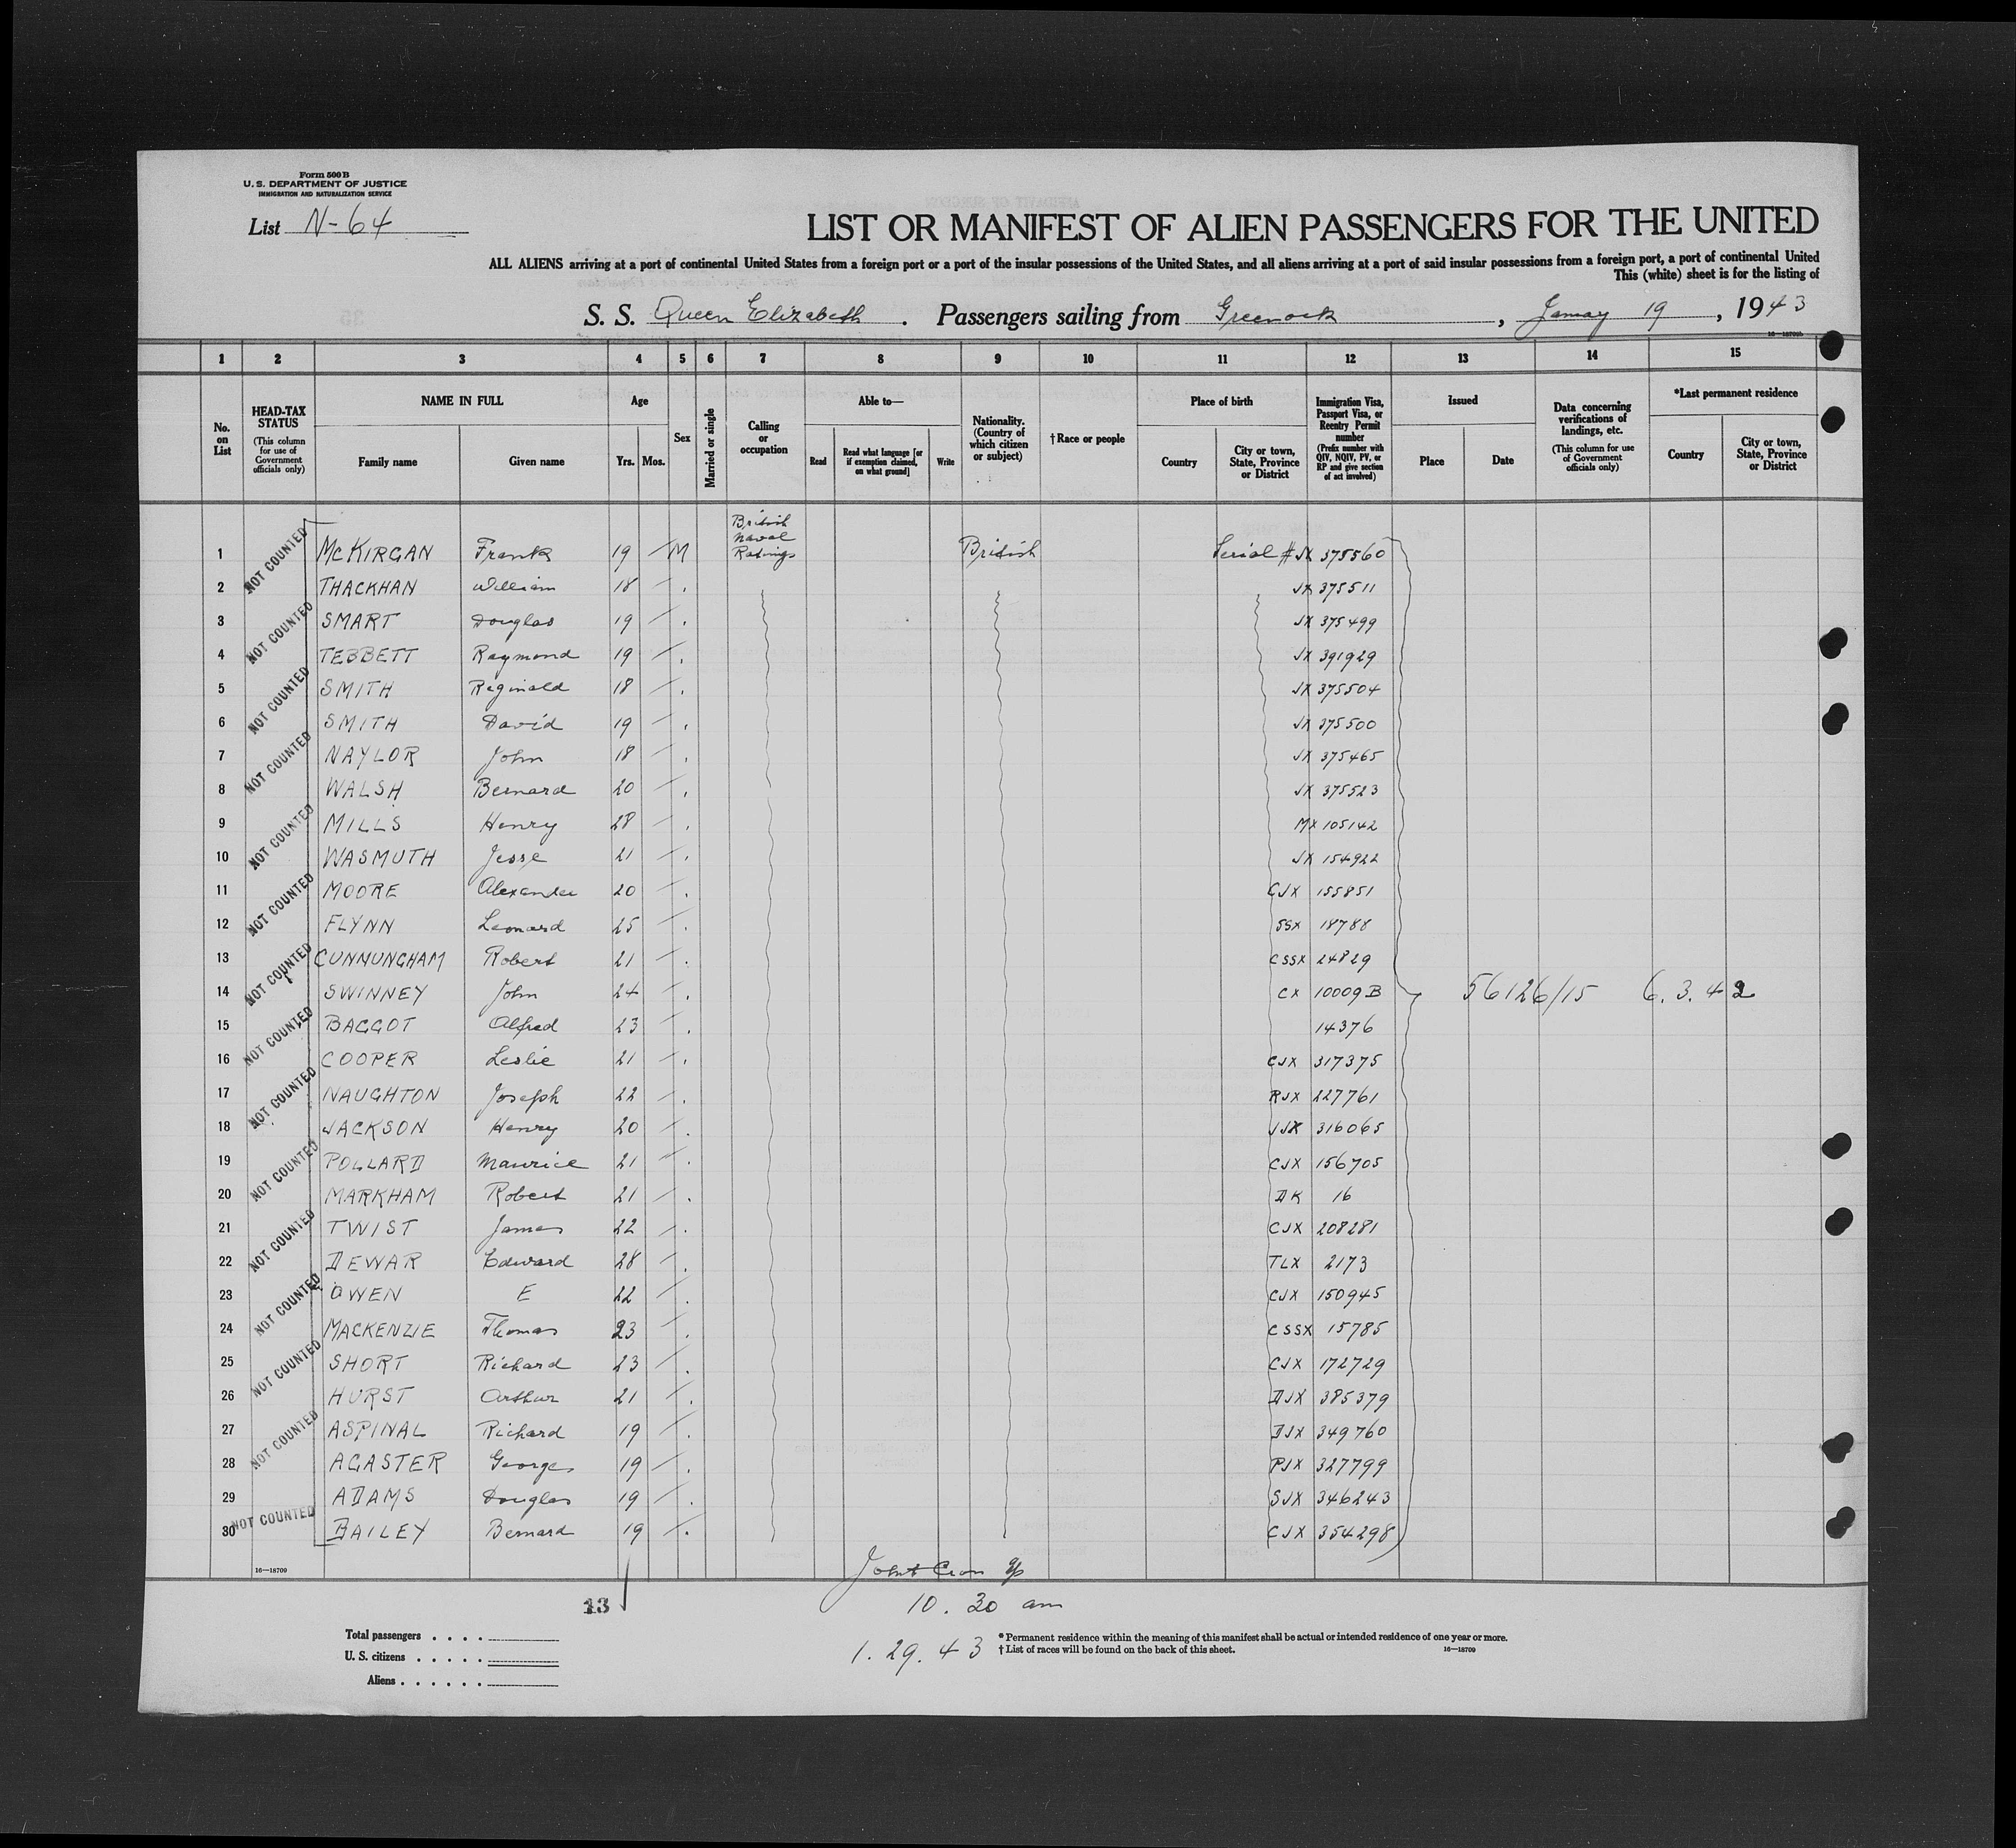 Form 500 B
U. S. DEPARTMENT OF JUSTICE
IMMIGRATION AND NATURALIZATION SERVICE
List N-64
LIST OR MANIFEST OF ALIEN PASSENGERS FOR THE UNITED
ALL ALIENS arriving at a port of continental United States from a foreign port or a port of the insular possessions of the United States, and all aliens arriving at a port of said insular possessions from a foreign port, a port of continental United
This (white) sheet is for the listing of
S. S. Queen Elizabeth . Passengers sailing from Greenock , 19 , 1943
1 2 3 4 5 6 7 8 9 10 11 12 13 14 15
No. on List
HEAD-TAX STATUS (This column for use of Government officials only)
NAME IN FULL
Family name
Given name
Age
Yrs. Mos.
Sex
Married or single
Calling or occupation
Able to—
Read
Read what language [or if exemption claimed, on what ground]
Write
Nationality. (Country of which citizen or subject)
† Race or people
Place of birth
Country
City or town, State, Province or District
Immigration Visa, Passport Visa, or Reentry Permit number (Prefix number with QIV, NQIV, PV, or RP and give section of act involved)
Issued
Place
Date
Data concerning verifications of landings, etc. (This column for use of Government officials only)
*Last permanent residence
Country
City or town, State, Province or District
1 NOT COUNTED McKIRGAN Frank 19 M British Naval Ratings British Serial # JX 375560
2 THACKHAN William 18 JX 375511
3 NOT COUNTED SMART Douglas 19 JX 375499
4 TEBBETT Raymond 19 JX 391929
5 NOT COUNTED SMITH Reginald 18 JX 375504
6 SMITH David 19 JX 375500
7 NOT COUNTED NAYLOR John 18 JX 375465
8 WALSH Bernard 20 JX 375523
9 NOT COUNTED MILLS Henry 28 MX 105142
10 WASMUTH Jesse 21 JX 154922
11 NOT COUNTED MOORE Alexander 20 CJX 155851
12 FLYNN Leonard 25 SSX 18788
13 NOT COUNTED CUNMUNGHAM Robert 21 CSSX 24829
14 SWINNEY John 24 CX 10009 B 56126/15 6.3.42
15 NOT COUNTED BAGGOT Alfred 23 14376
16 COOPER Leslie 21 CJX 317375
17 NOT COUNTED NAUGHTON Joseph 22 RJX 227761
18 JACKSON Henry 20 JJX 316065
19 NOT COUNTED POLLARD Maurice 21 CJX 156705
20 MARKHAM Robert 21 DK 16
21 NOT COUNTED TWIST James 22 CJX 208281
22 DEWAR Edward 28 TLX 2173
23 NOT COUNTED OWEN E 22 CJX 150945
24 MACKENZIE Thomas 23 CSSX 15785
25 NOT COUNTED SHORT Richard 23 CJX 172729
26 HURST Arthur 21 DJX 385379
27 NOT COUNTED ASPINAL Richard 19 DJX 349760
28 AGASTER George 19 PJX 327799
29 ADAMS Douglas 19 SJX 346243
30 NOT COUNTED BAILEY Bernard 19 CJX 354298
16—18709
13
10.30 am
1.29.43
Total passengers . . . .
U. S. citizens . . . . .
Aliens . . . . . .
* Permanent residence within the meaning of this manifest shall be actual or intended residence of one year or more.
† List of races will be found on the back of this sheet.
16—18709